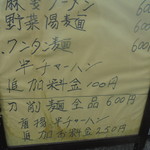 麻婆ラーメン 600
野菜湯麺 600
ワンタン麺 60
半チャーハン
追加料金100円
刀削麺全品600円
半チャーハン
追加料金250円